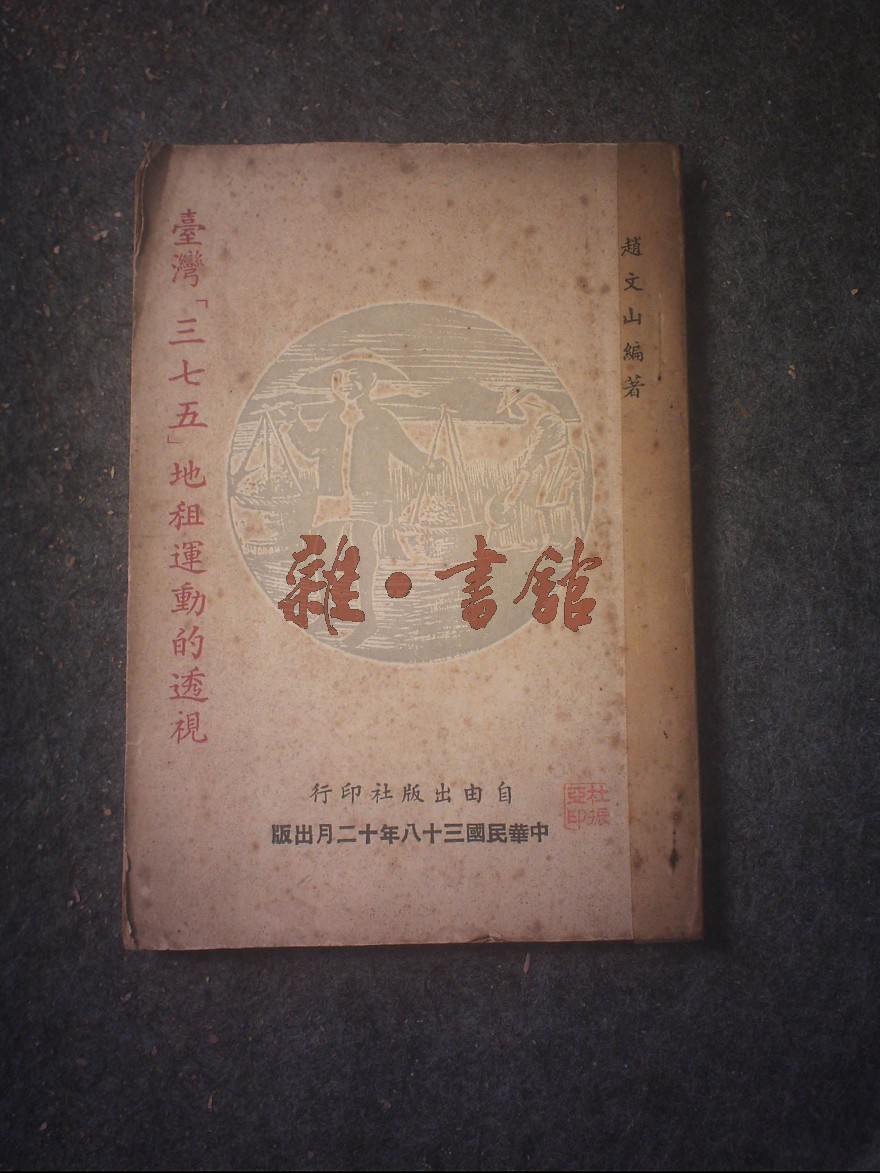 趙文山編著
臺灣「三七五」地租運動的透視
雜·書館
自由出版社印行
中華民國三十八年十二月出版
杜振
亞印